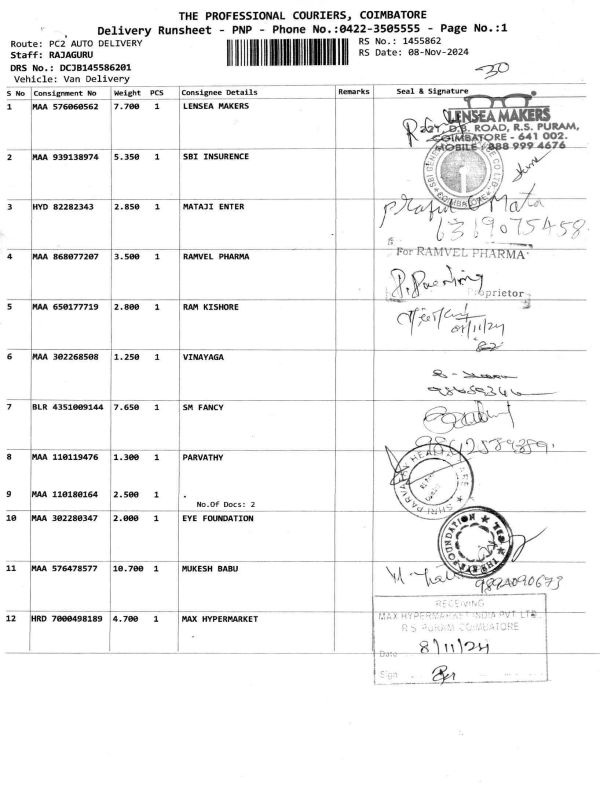 THE PROFESSIONAL COURIERS, COIMBATORE
Delivery Runsheet - PNP - Phone No.:0422-3505555 - Page No.:1
Route: PC2 AUTO DELIVERY
RS No.: 1455862
Staff: RAJAGURU
RS Date: 08-Nov-2024
DRS No.: DCJB145586201
Vehicle: Van Delivery
30
S No Consignment No Weight PCS Consignee Details Remarks Seal & Signature
1 MAA 576060562 7.700 1 LENSEA MAKERS
LENSEA MAKERS
D.B. ROAD, R.S. PURAM,
COIMBATORE - 641 002.
MOBILE : 888 999 4676
2 MAA 939138974 5.350 1 SBI INSURENCE
3 HYD 82282343 2.850 1 MATAJI ENTER
Mata
6319075458
4 MAA 868077207 3.500 1 RAMVEL PHARMA
For RAMVEL PHARMA
Proprietor
5 MAA 650177719 2.800 1 RAM KISHORE
6 MAA 302268508 1.250 1 VINAYAGA
7 BLR 4351009144 7.650 1 SM FANCY
8 MAA 110119476 1.300 1 PARVATHY
9 MAA 110180164 2.500 1 .
No.Of Docs: 2
10 MAA 302280347 2.000 1 EYE FOUNDATION
THE EYE FOUNDATION
11 MAA 576478577 10.700 1 MUKESH BABU
9894090673
12 HRD 7000498189 4.700 1 MAX HYPERMARKET
RECEIVING
MAX HYPERMARKET INDIA PVT LTD.
R S PURAM COIMBATORE
Date 8/11/24
Sign